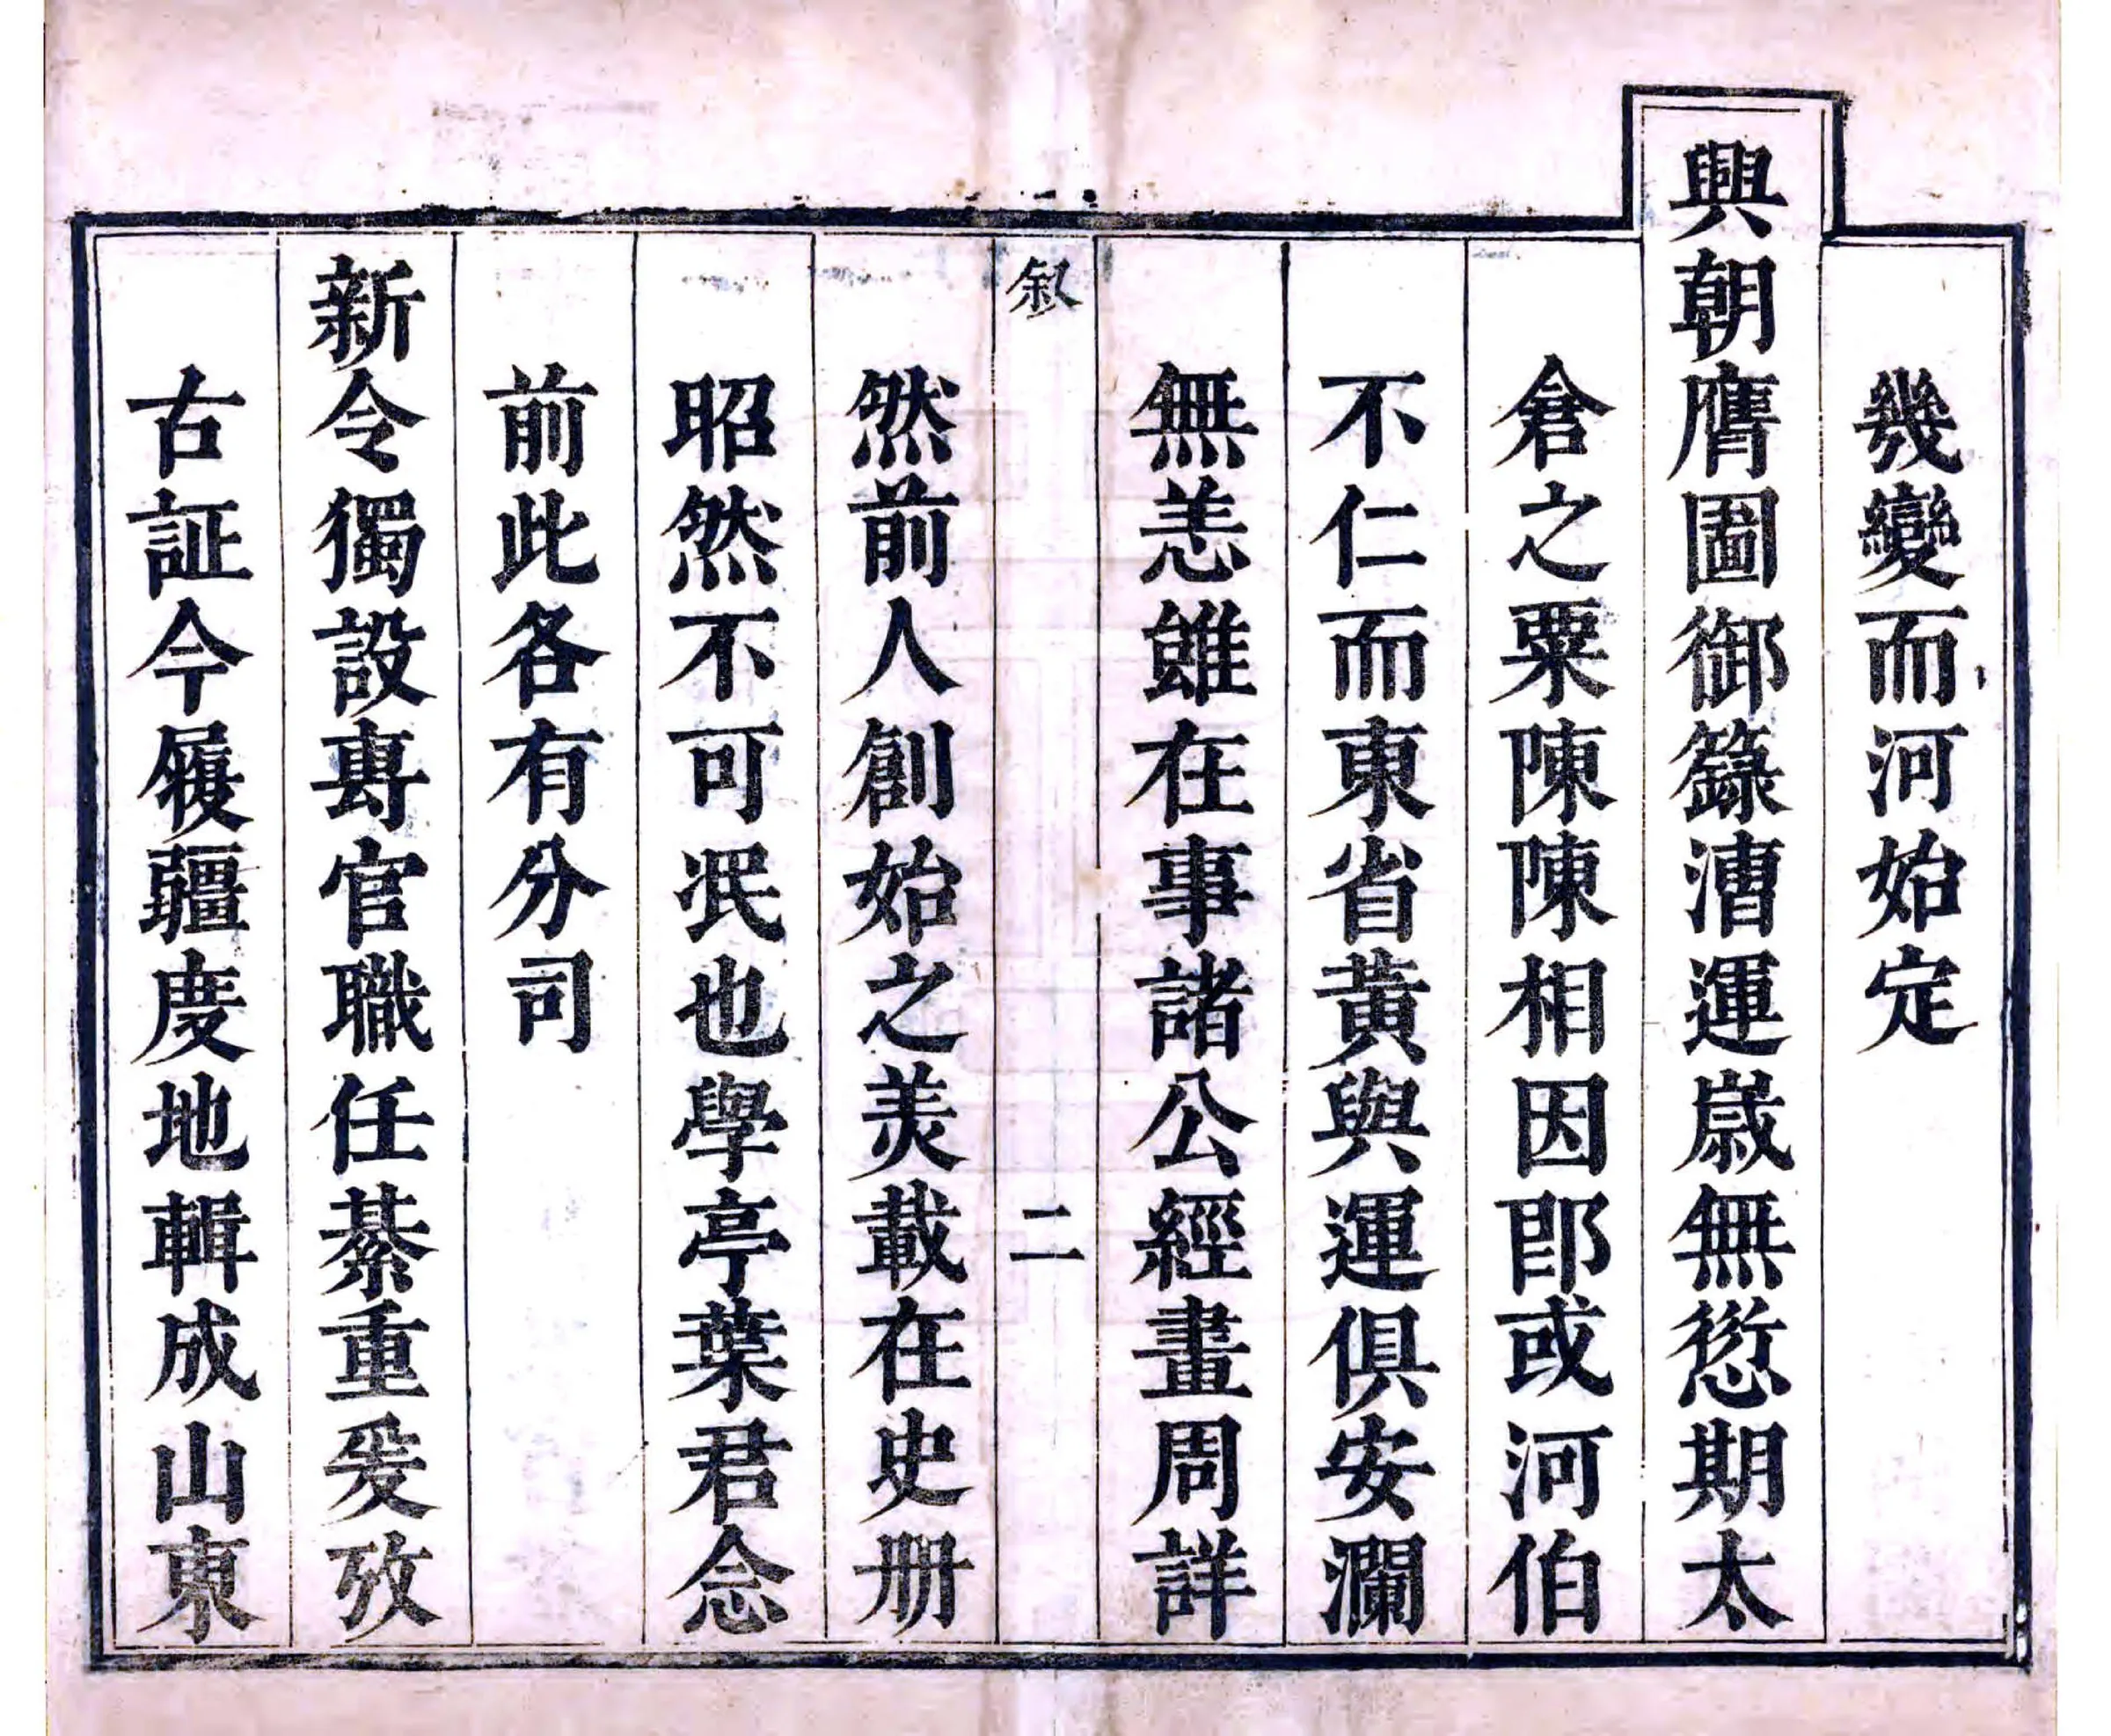 幾變而河始定
興朝膺圖御籙漕運嵗無愆期太
倉之粟陳陳相因卽或河伯
不仁而東省黃與運俱安瀾
無恙雖在事諸公經畫周詳
敘
二
然前人創始之美載在史册
昭然不可泯也學亭葉君念
前此各有分司
新令獨設專官職任綦重爰攷
古証今履疆度地輯成山東